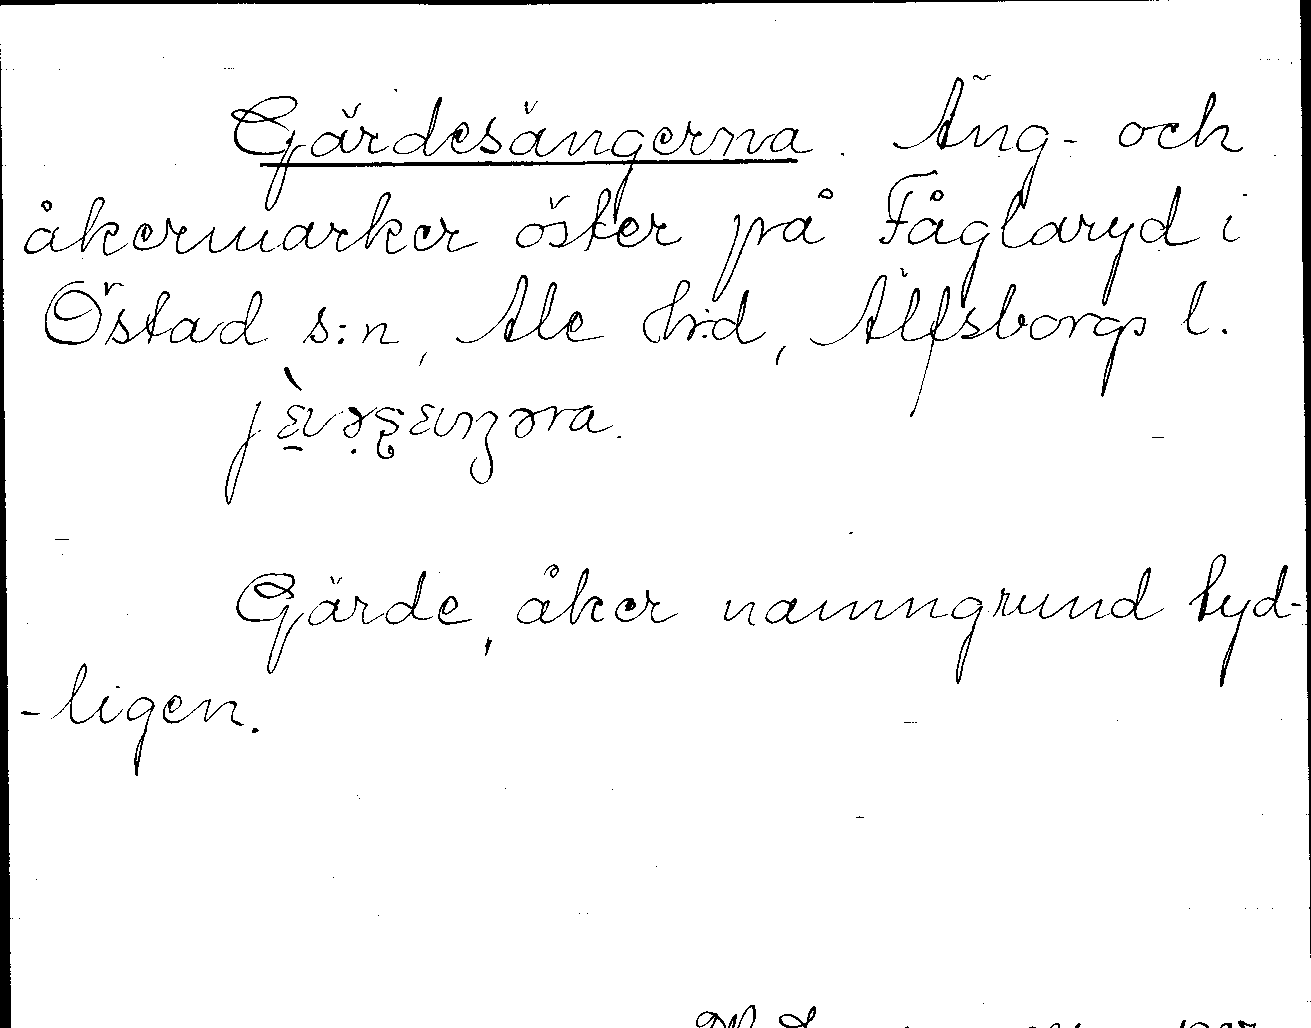 Gärdesängerna. Äng- och
åkermarker öster på Fåglaryd i
Östad s:n, Ale hrd, Älfsborgs l.
Gärde, åker namngrund tyd-
-ligen.